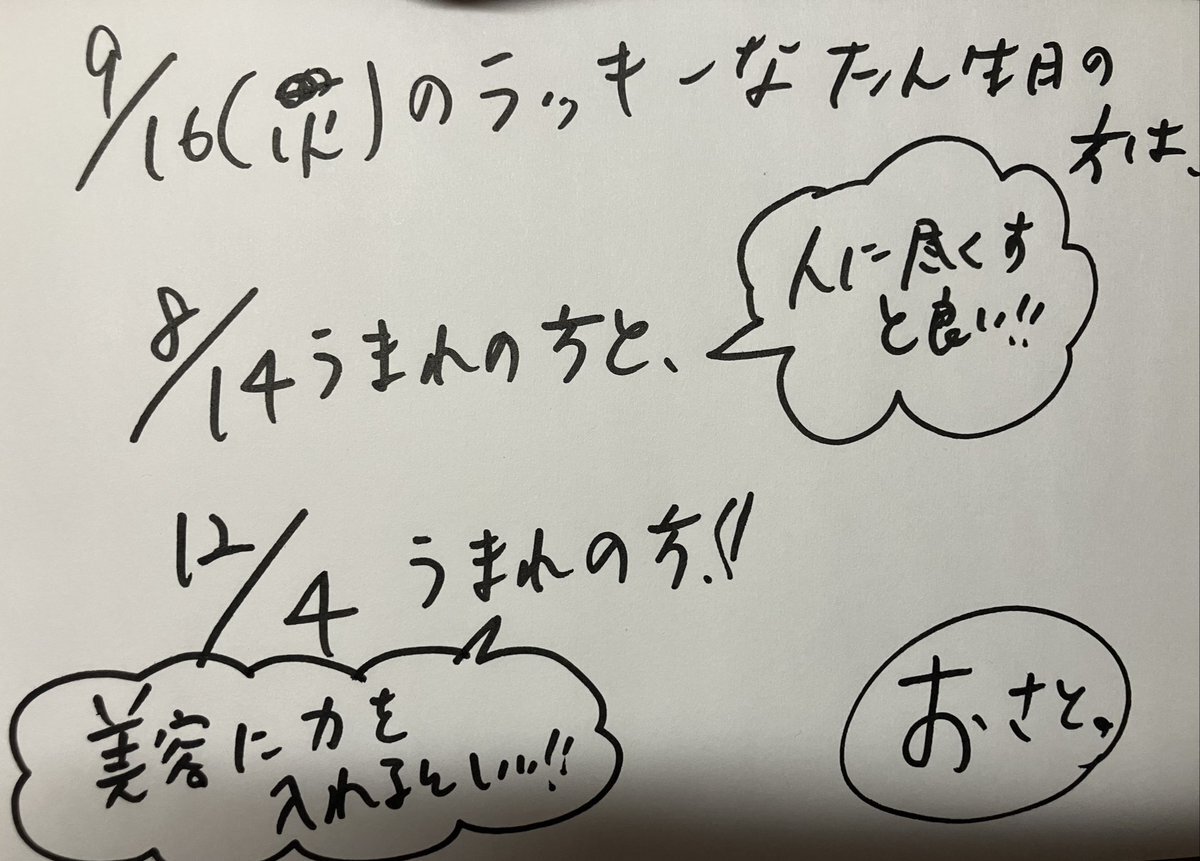 9/16(火)のラッキーなたん生日の
方は、
8/14うまれの方と、
人に尽くす
と良い!!
12/4 うまれの方!!
美容に力を
入れるといい!!
おさと。